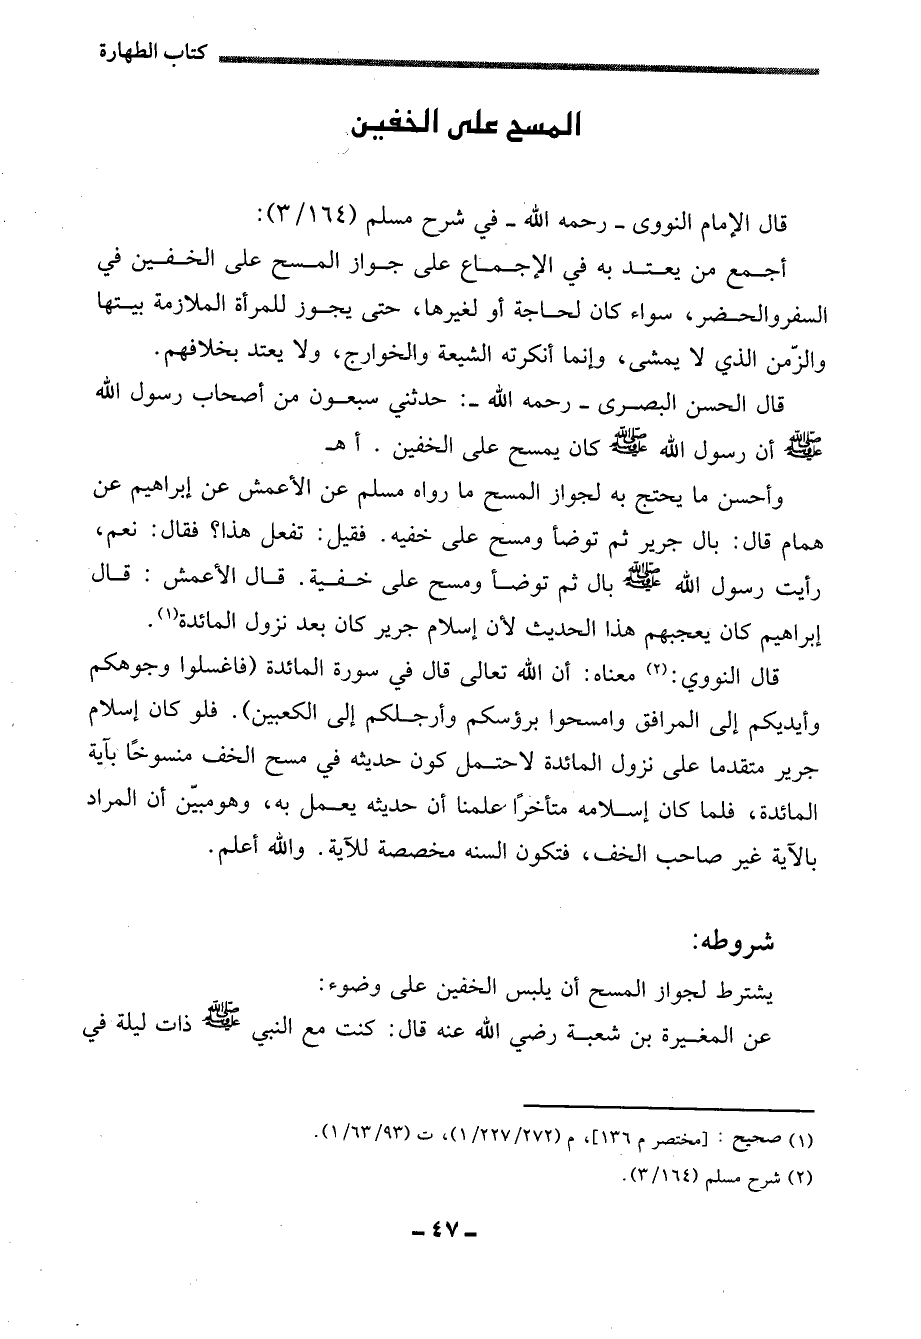 كتاب الطهارة
المسح على الخفين
قال الإمام النووى ـ رحمه الله ـ في شرح مسلم (٣/١٦٤):
أجمع من يعتد به في الإجماع على جواز المسح على الخفين في
السفر والحضر، سواء كان لحاجة أو لغيرها، حتى يجوز للمرأة الملازمة بيتها
والزّمن الذي لا يمشى، وإنما أنكرته الشيعة والخوارج، ولا يعتد بخلافهم.
قال الحسن البصرى ـ رحمه الله ـ: حدثني سبعون من أصحاب رسول الله
ﷺ أن رسول الله ﷺ كان يمسح على الخفين . أ هـ
وأحسن ما يحتج به لجواز المسح ما رواه مسلم عن الأعمش عن إبراهيم عن
همام قال: بال جرير ثم توضأ ومسح على خفيه. فقيل: تفعل هذا؟ فقال: نعم،
رأيت رسول الله ﷺ بال ثم توضأ ومسح على خفية. قال الأعمش : قال
إبراهيم كان يعجبهم هذا الحديث لأن إسلام جرير كان بعد نزول المائدة(١).
قال النووي:(٢) معناه: أن الله تعالى قال في سورة المائدة (فاغسلوا وجوهكم
وأيديكم إلى المرافق وامسحوا برؤسكم وأرجلكم إلى الكعبين). فلو كان إسلام
جرير متقدما على نزول المائدة لاحتمل كون حديثه في مسح الخف منسوخًا بآية
المائدة، فلما كان إسلامه متأخرًا علمنا أن حديثه يعمل به، وهومبيّن أن المراد
بالآية غير صاحب الخف، فتكون السنه مخصصة للآية. والله أعلم.
شروطه:
يشترط لجواز المسح أن يلبس الخفين على وضوء:
عن المغيرة بن شعبة رضي الله عنه قال: كنت مع النبي ﷺ ذات ليلة في
(١) صحيح : [مختصر م ١٣٦]، م (١/٢٢٧/٢٧٢)، ت (١/٦٣/٩٣).
(٢) شرح مسلم (٣/١٦٤).
ـ ٤٧ ـ